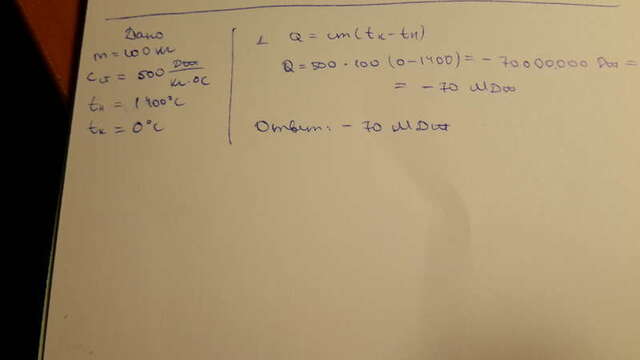 Дано
m = 100 кг
c ст = 500 Дж/кг·°C
tн = 1400°C
tк = 0°C
Q = cm(tк - tн)
Q = 500 · 100 (0 - 1400) = - 70000000 Дж =
= - 70 МДж
Ответ: - 70 МДж